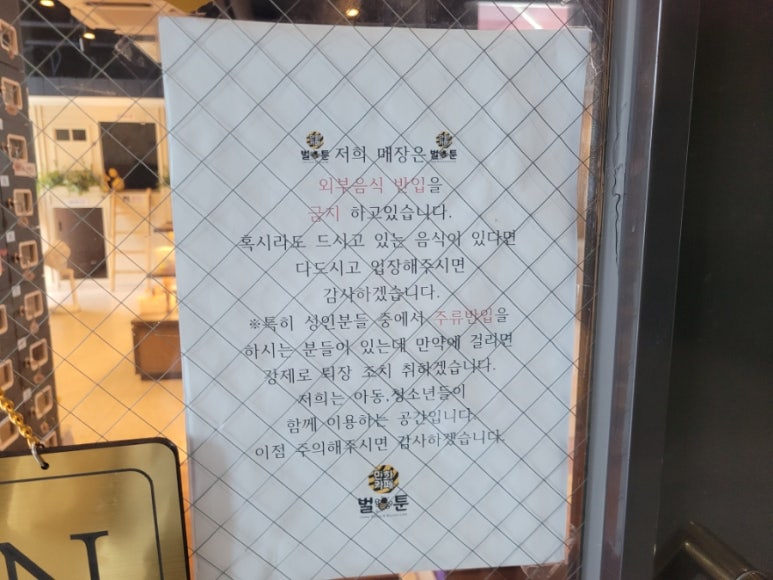 벌툰 저희 매장은 벌툰
외부음식 반입을
금지 하고있습니다.
혹시라도 드시고 있는 음식이 있다면
다드시고 입장해주시면
감사하겠습니다.
※특히 성인분들 중에서 주류반입을
하시는 분들이 있는데 만약에 걸리면
강제로 퇴장 조치 취하겠습니다.
저희는 아동,청소년들이
함께 이용하는 공간입니다.
이점 주의해주시면 감사하겠습니다.
만화
카페
벌툰
N